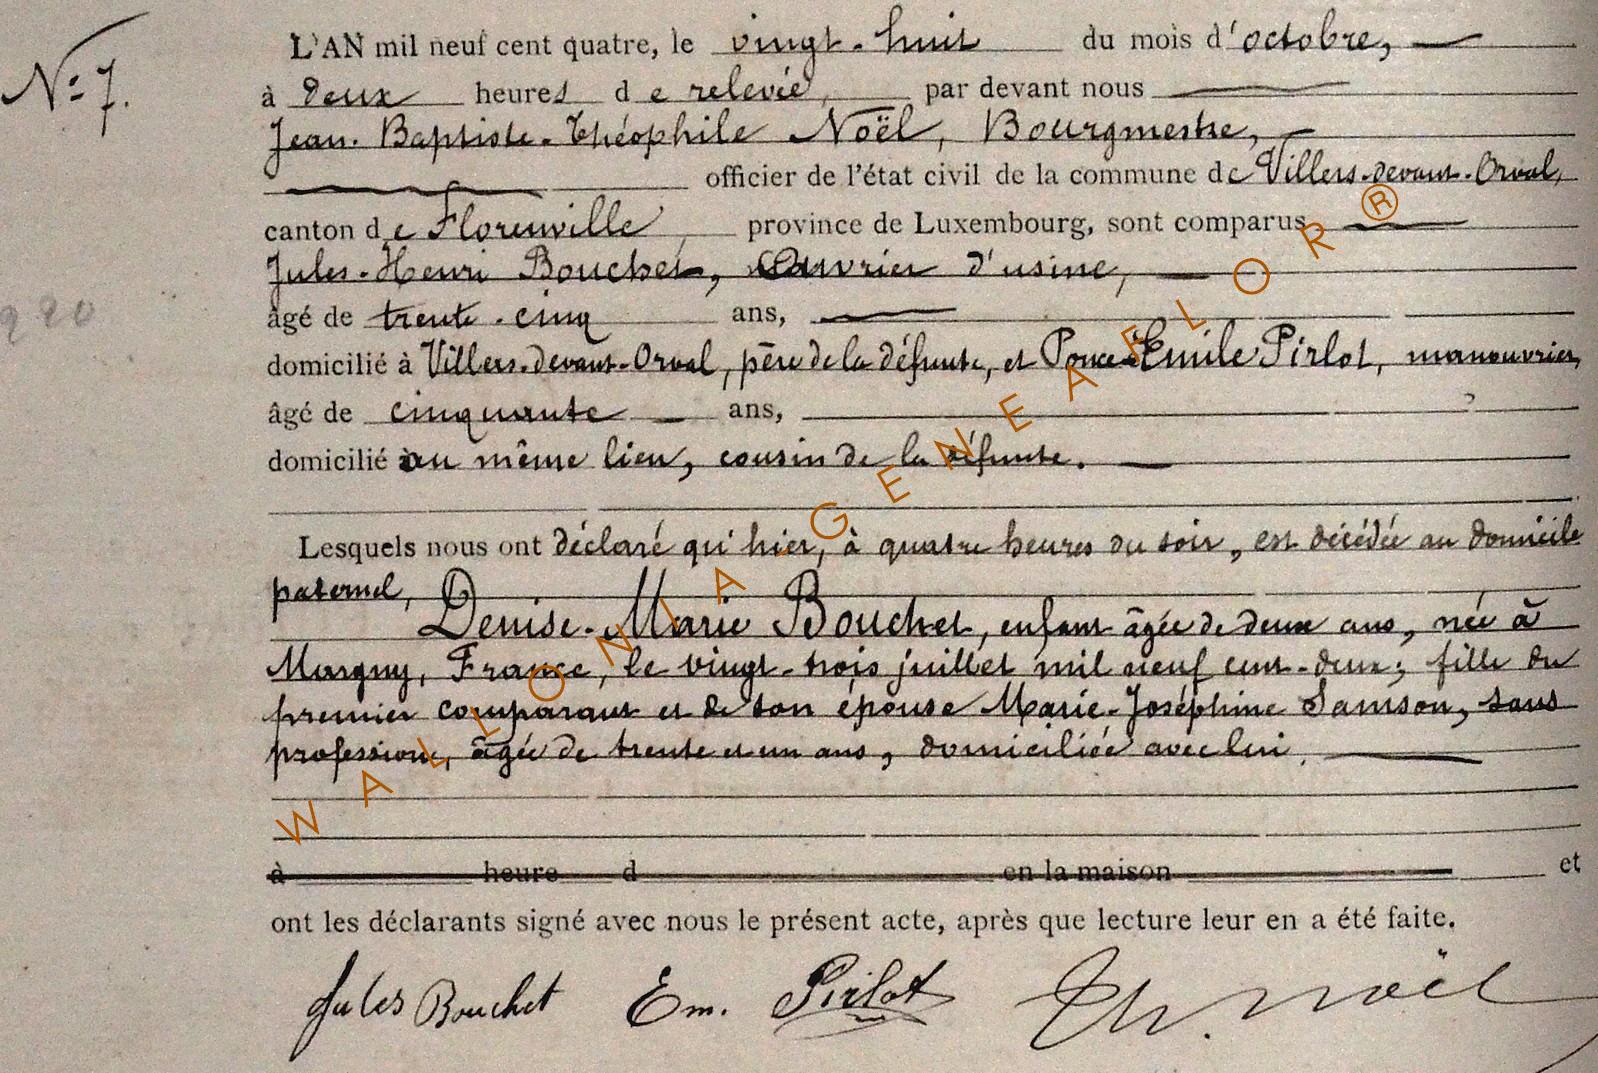 N° 7.
L'AN mil neuf cent quatre, le vingt-huit du mois d'octobre,
à deux heures de relevée, par devant nous
Jean-Baptiste-Théophile Noël, Bourgmestre,
officier de l'état civil de la commune de Villers-devant-Orval,
canton de Florenville, province de Luxembourg, sont comparus
Jules-Henri Bouchet, Ouvrier d'usine,
âgé de trente-cinq ans,
domicilié à Villers-devant-Orval, père de la défunte, et Ponce-Emile Pirlot, manouvrier,
âgé de cinquante ans,
domicilié au même lieu, cousin de la défunte.
Lesquels nous ont déclaré qu'hier, à quatre heures du soir, est décédée au domicile
paternel,
Denise-Marie Bouchet, enfant âgée de deux ans, née à
Margny, France, le vingt-trois juillet mil neuf cent-deux; fille du
premier comparant et de son épouse Marie-Joséphine Samson, sans
profession, âgée de trente et un ans, domiciliée avec lui.
à heure d en la maison et
ont les déclarants signé avec nous le présent acte, après que lecture leur en a été faite.
Jules Bouchet Em. Pirlot Th. Noël
WALLONIA GENEAFLOR ®